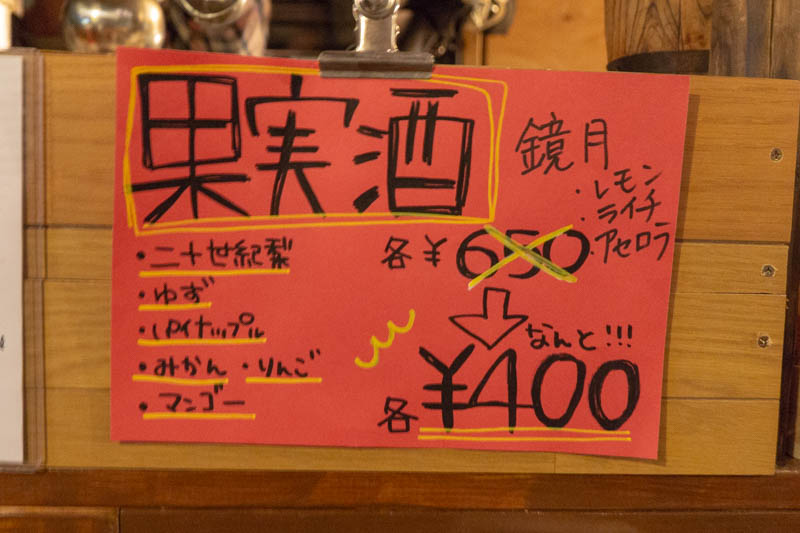 果実酒
鏡月
・レモン
・ライチ
・アセロラ
・二十世紀梨
・ゆず
・パイナップル
・みかん ・りんご
・マンゴー
各 ¥650
なんと!!!
各 ¥400